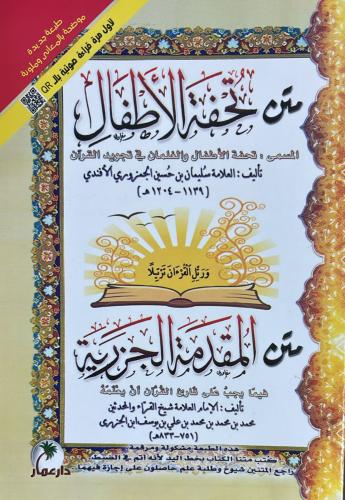 طبعة جديدة
موضحة بالمعاني وملونة
لأول مرة قراءة صوتية بالـ QR
متن تحفة الأطفال
المسمى : تحفة الأطفال والغلمان في تجويد القرآن
تأليف : العلامة سليمان بن حسين الجمزوري الأفندي
(١١٣٩ - ١٢٠٤ هـ)
وَرَتِّلِ الْقُرْءَانَ تَرْتِيلًا
متن المقدمة الجزرية
فيما يجب على قارئ القرآن أن يعلمه
تأليف : الإمام العلامة شيخ القراء والمحدثين
محمد بن محمد بن محمد بن علي بن يوسف ابن الجزري
(٧٥١ - ٨٣٣ هـ)
هذه الطبعة مشكولة ومرقمة
كتب متنا الكتاب بخط اليد لأنه أتم في الضبط
راجع المتنين شيوخ وطلبة علم حاصلون على إجازة فيهما
دار عمار